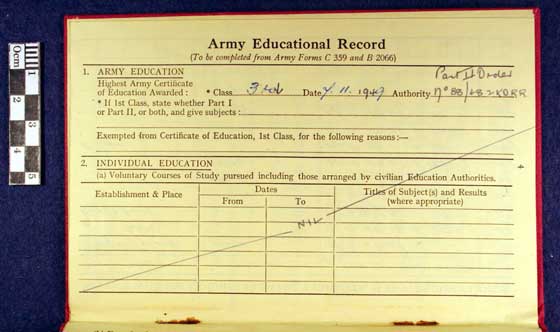 0cm 1 2 3 4 5
Army Educational Record
(To be completed from Army Forms C 359 and B 2066)
1. ARMY EDUCATION
Highest Army Certificate Part II Order
of Education Awarded : * Class 3rd Date 7.11.1947 Authority No 88/48
* If 1st Class, state whether Part I
or Part II, or both, and give subjects :
Exempted from Certificate of Education, 1st Class, for the following reasons :—
2. INDIVIDUAL EDUCATION
(a) Voluntary Courses of Study pursued including those arranged by civilian Education Authorities.
Establishment & Place Dates Titles of Subject(s) and Results
From To (where appropriate)
NIL